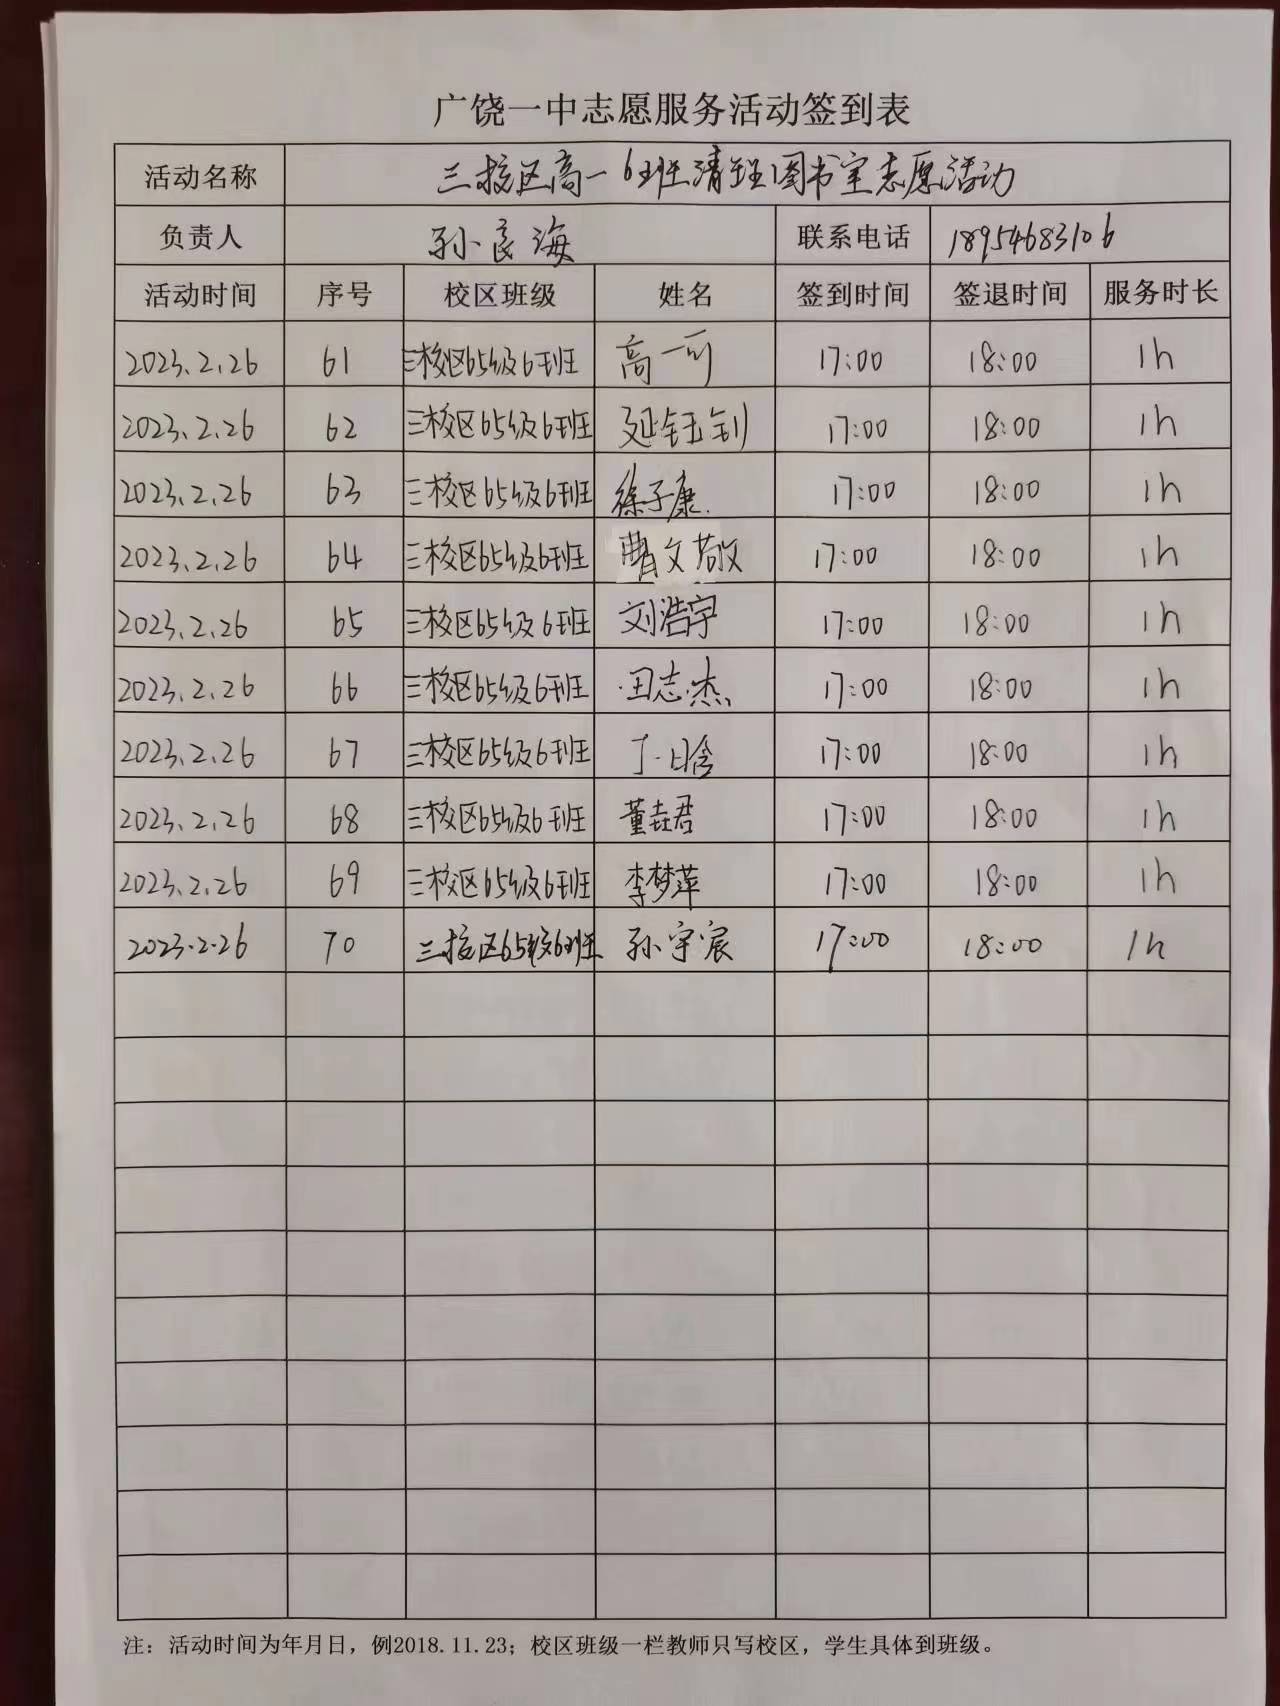 广饶一中志愿服务活动签到表
活动名称 三校区高一6班清理图书室志愿活动
负责人 孙良海 联系电话 18954683106
活动时间 序号 校区班级 姓名 签到时间 签退时间 服务时长
2023.2.26 61 三校区65级6班 高一可 17:00 18:00 1h
2023.2.26 62 三校区65级6班 延钰钊 17:00 18:00 1h
2023.2.26 63 三校区65级6班 徐子康 17:00 18:00 1h
2023.2.26 64 三校区65级6班 曹文敬 17:00 18:00 1h
2023.2.26 65 三校区65级6班 刘浩宇 17:00 18:00 1h
2023.2.26 66 三校区65级6班 田志杰 17:00 18:00 1h
2023.2.26 67 三校区65级6班 丁日晗 17:00 18:00 1h
2023.2.26 68 三校区65级6班 董垚君 17:00 18:00 1h
2023.2.26 69 三校区65级6班 李梦萍 17:00 18:00 1h
2023.2.26 70 三校区65级6班 孙宇宸 17:00 18:00 1h
注：活动时间为年月日，例2018.11.23；校区班级一栏教师只写校区，学生具体到班级。